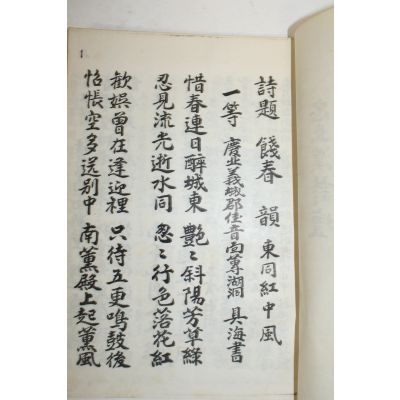 詩題 餞春 韻 東同紅中風
一等 慶北義城郡佳音面蓴湖洞 具海書
惜春連日醉城東 艶〻斜陽芳草綠
忍見流光逝水同 忽〻行色落花紅
歡娛曾在逢迎裡 只待五更鳴鼓後
怊悵空多送別中 南薰殿上起薰風
1